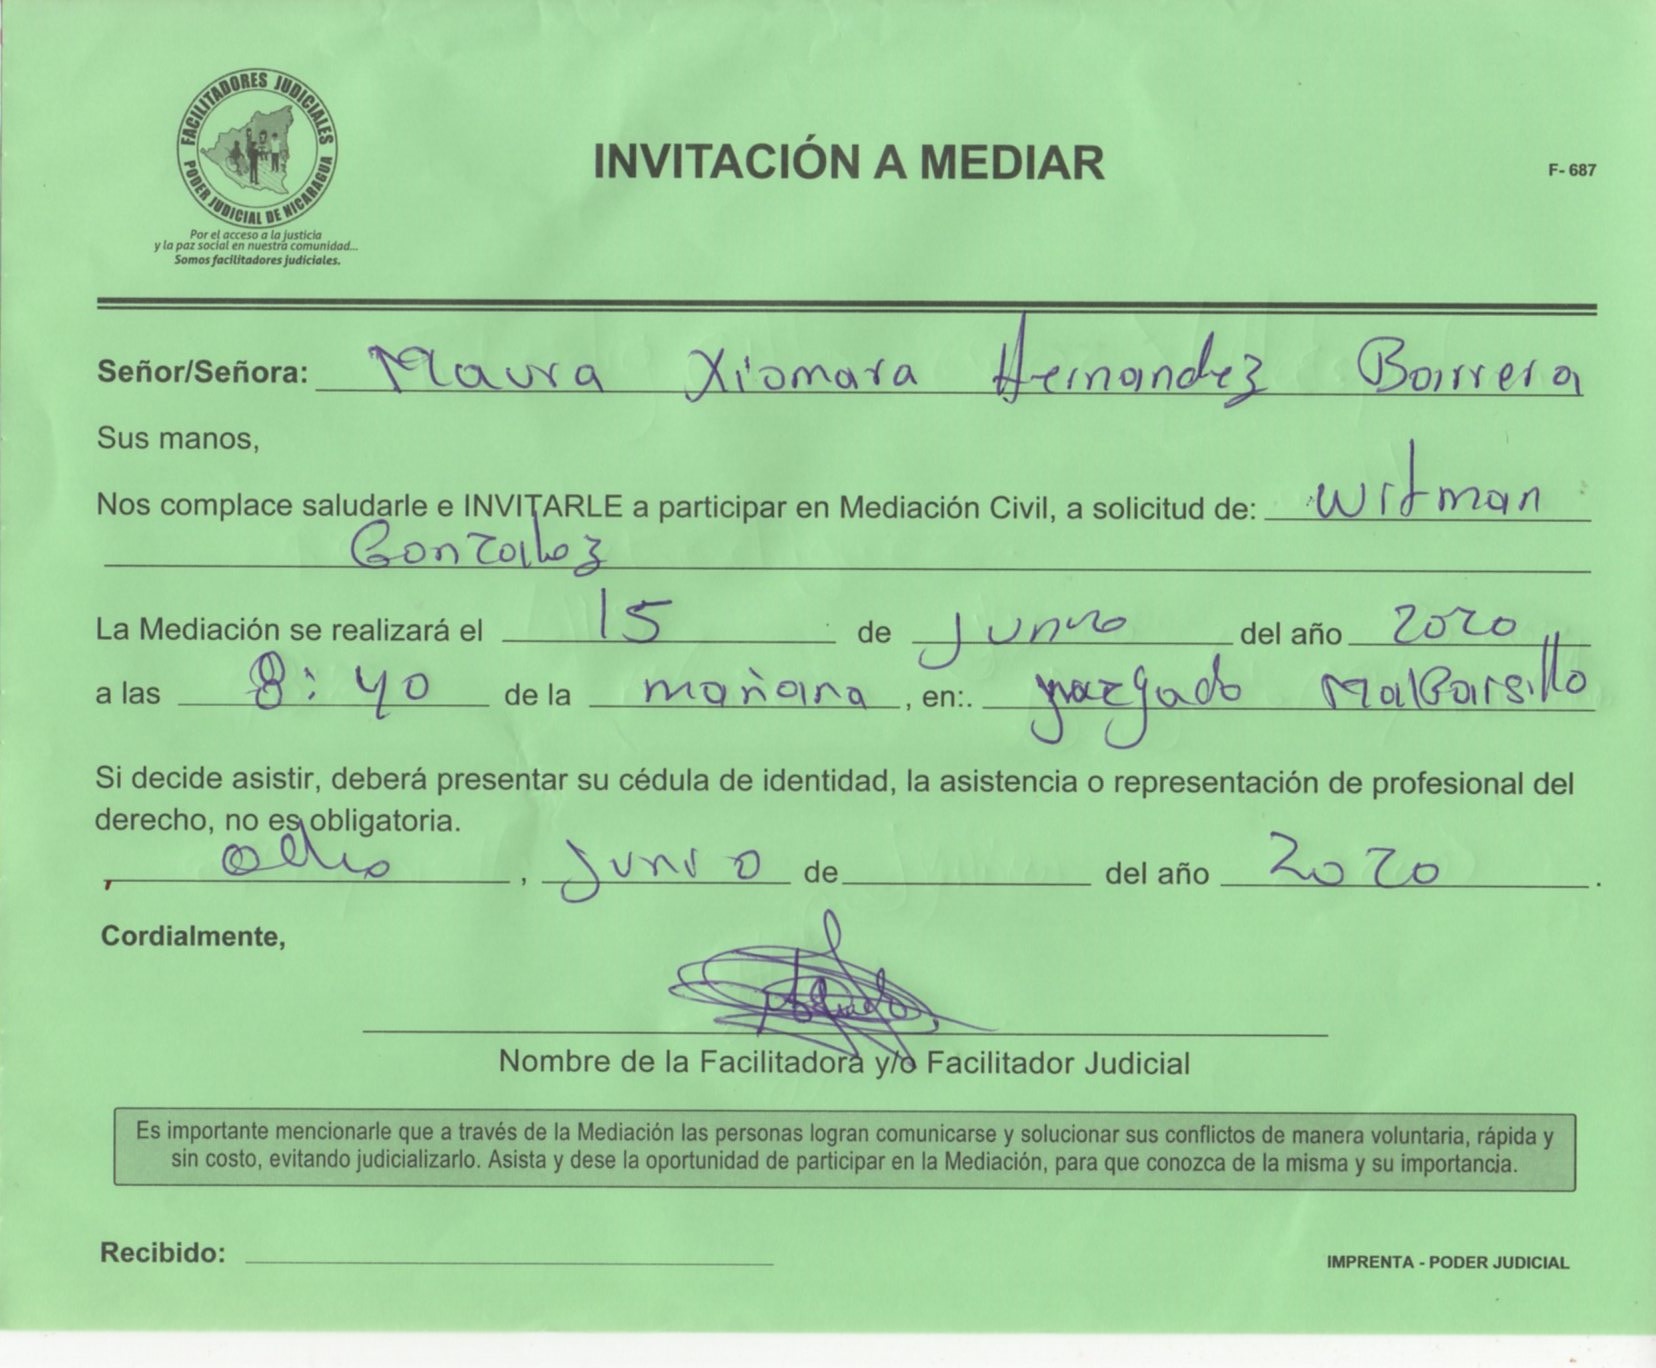 FACILITADORES JUDICIALES
PODER JUDICIAL DE NICARAGUA
Por el acceso a la justicia
y la paz social en nuestra comunidad...
Somos facilitadores judiciales.
INVITACIÓN A MEDIAR
F- 687
Señor/Señora: Maura Xiomara Hernandez Barrera
Sus manos,
Nos complace saludarle e INVITARLE a participar en Mediación Civil, a solicitud de: Witman
Gonzalez
La Mediación se realizará el 15 de Junio del año 2020
a las 8:40 de la mañana, en:. juzgado Malbarsillo
Si decide asistir, deberá presentar su cédula de identidad, la asistencia o representación de profesional del
derecho, no es obligatoria.
ocho, Junio de del año 2020.
Cordialmente,
Nombre de la Facilitadora y/o Facilitador Judicial
Es importante mencionarle que a través de la Mediación las personas logran comunicarse y solucionar sus conflictos de manera voluntaria, rápida y
sin costo, evitando judicializarlo. Asista y dese la oportunidad de participar en la Mediación, para que conozca de la misma y su importancia.
Recibido:
IMPRENTA - PODER JUDICIAL